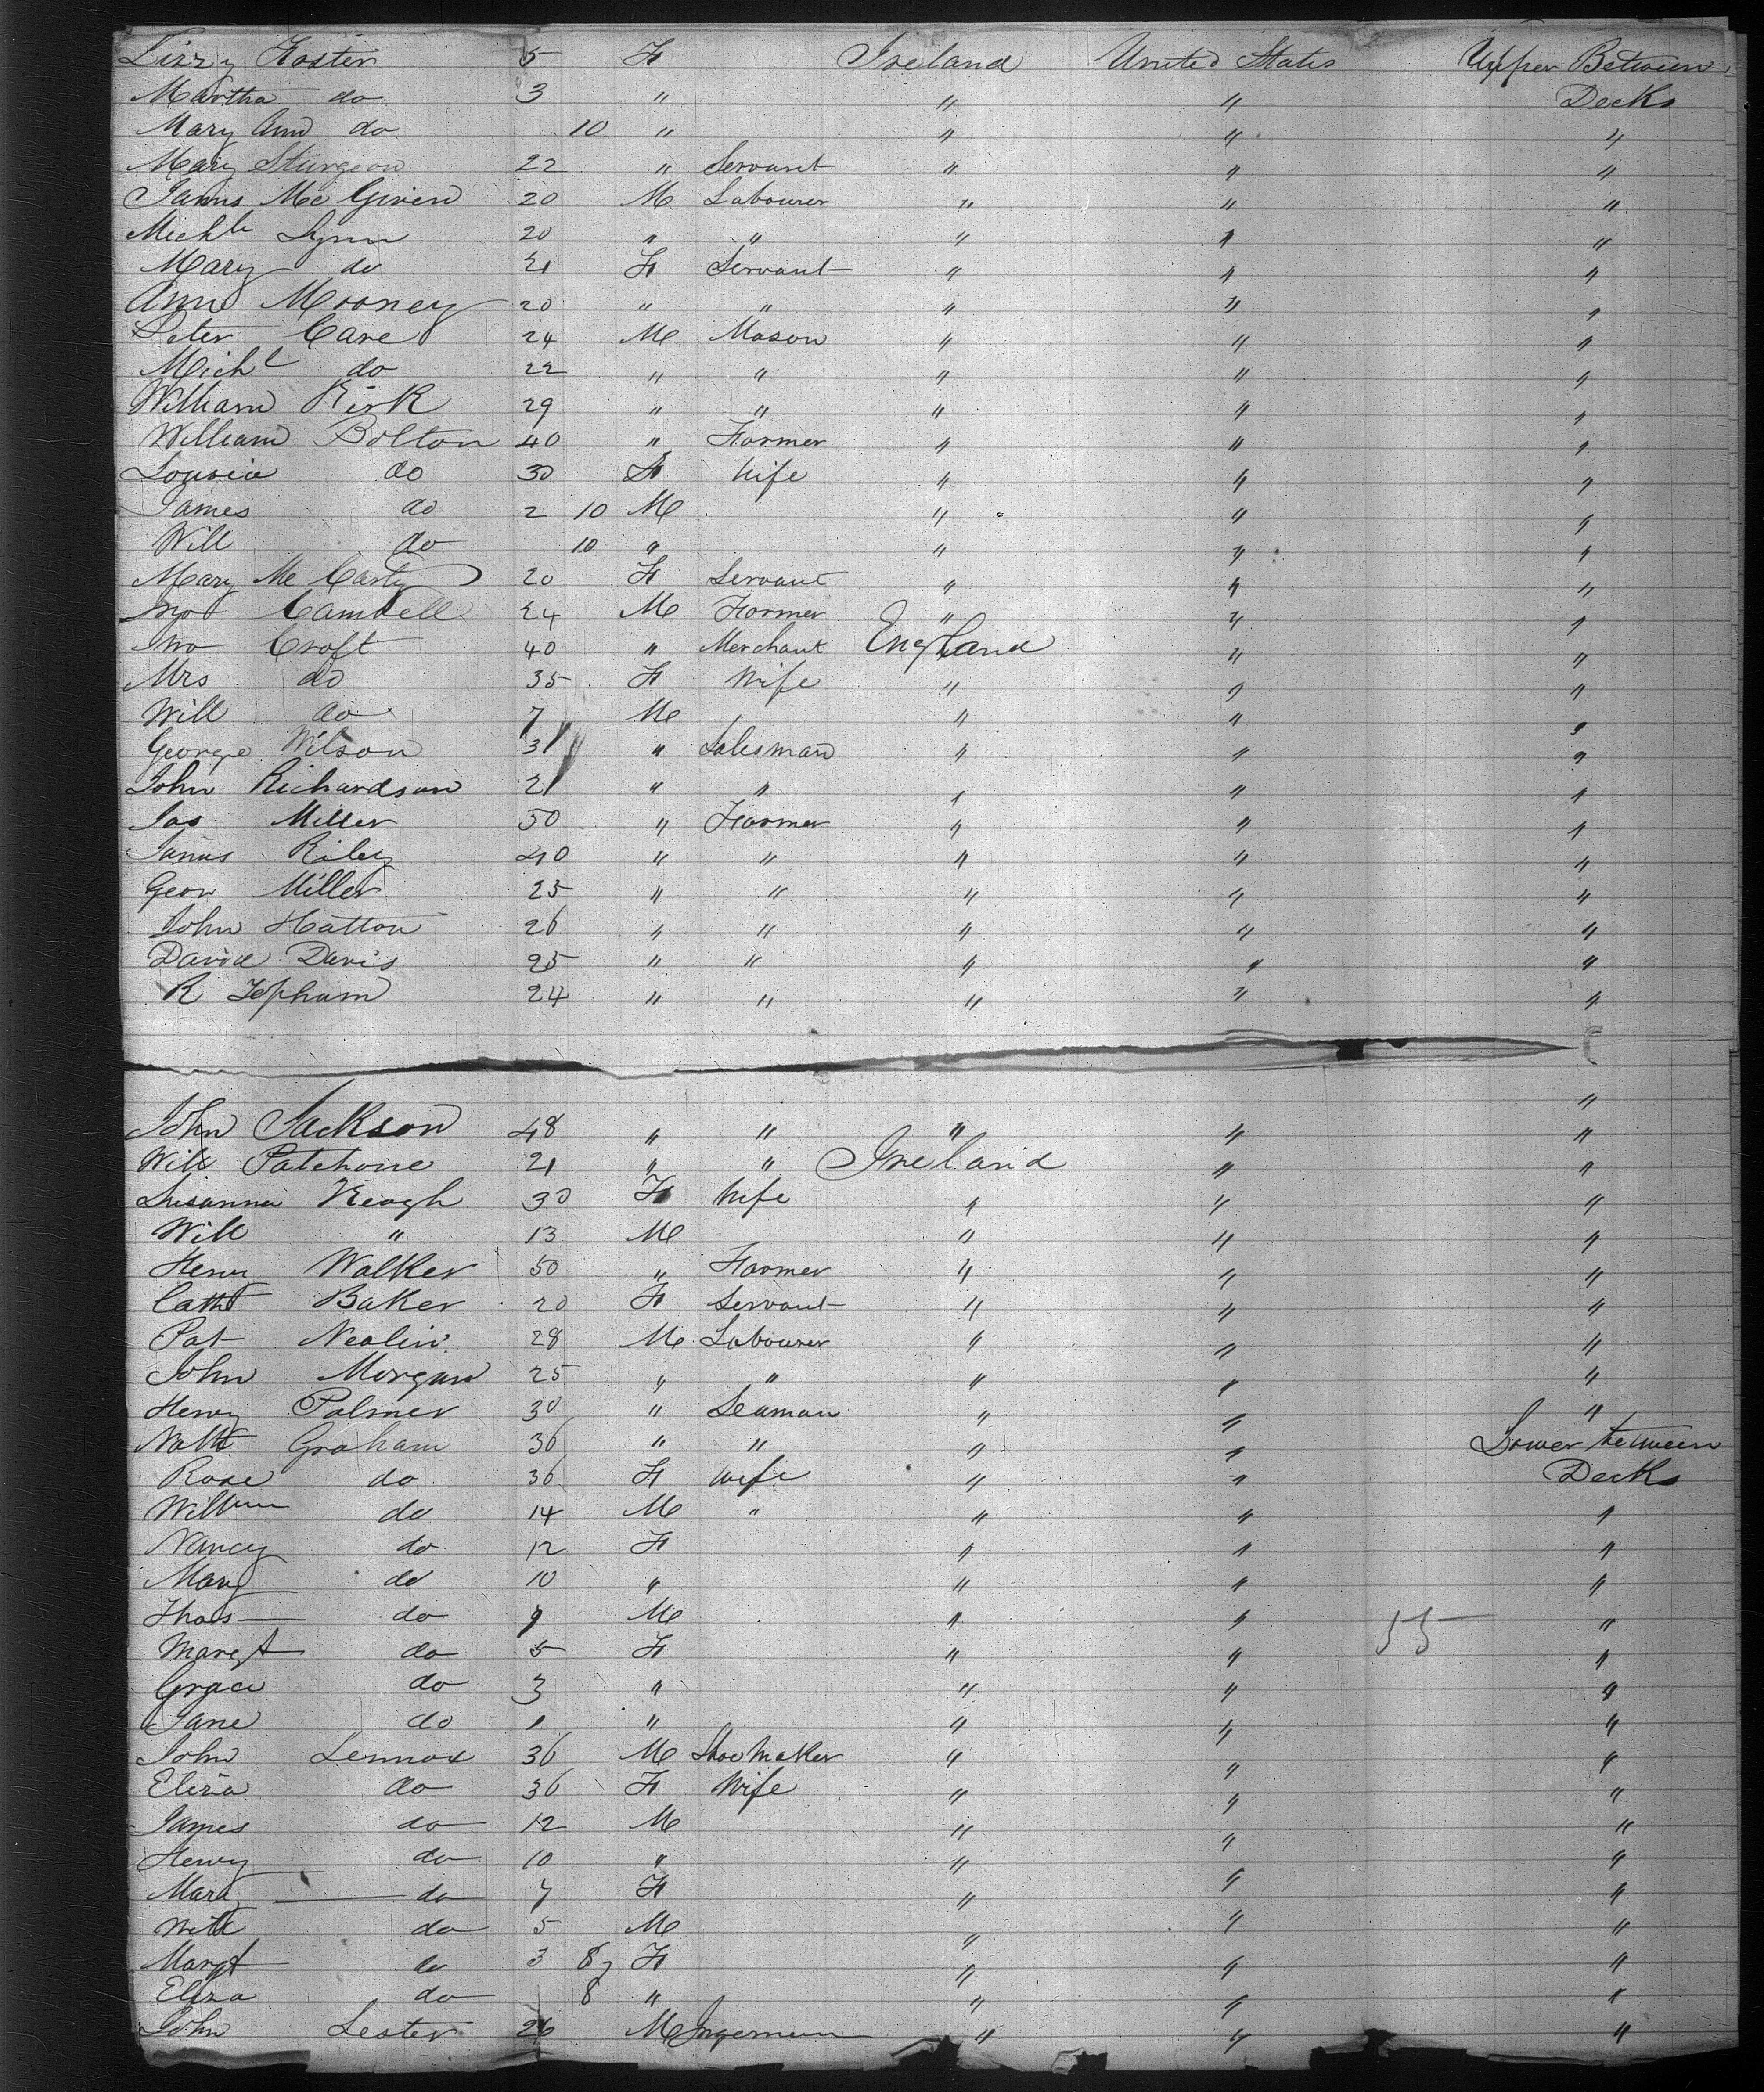 Lizzy Foster 5 F Ireland United States Upper Between
Martha do 3 " " " Decks
Mary Ann do 10 " " " "
Mary Sturgeon 22 " Servant " " "
James Mc Given 20 M Labourer " " "
Michl Lynn 20 " " " " "
Mary do 21 F Servant " " "
Ann Mooney 20 " " " " "
Peter Care 24 M Mason " " "
Michl do 22 " " " " "
William Kirk 29 " " " " "
William Bolton 40 " Farmer " " "
Lousia do 30 F Wife " " "
James do 2 10 M " " "
Will do 10 " " " "
Mary Mc Carty 20 F Servant " " "
Cambell 24 M Farmer " " "
Jno Croft 40 " Merchant England " "
Mrs do 35 F Wife " " "
Will do 7 M " " "
George Wilson 31 " Salesman " " "
John Richardson 21 " " " " "
Jas Miller 50 " Farmer " " "
James Riley 40 " " " " "
Geor Miller 25 " " " " "
John Hatton 26 " " " " "
David Davis 25 " " " " "
R Topham 24 " " " " "
"
John Jackson 48 " " " " "
Will Patchone 21 " " Ireland " "
Susanna Keogh 30 F Wife " " "
Will " 13 M " " "
Henry Walker 50 " Farmer " " "
Catht Baker 20 F Servant " " "
Pat Nealin 28 M Labourer " " "
John Morgan 25 " " " " "
Henry Palmer 30 " Seaman " " "
Natht Graham 36 " " " " Lower between
Rose do 36 F Wife " " Decks
William do 14 M " " " "
Nancy do 12 F " " "
Mary do 10 " " " "
Thos do 9 M " " 55 "
Margt do 5 F " " "
Grace do 3 " " " "
Jane do 1 " " " "
John Lennox 36 M Shoe Maker " " "
Eliza do 36 F Wife " " "
James do 12 M " " "
Henry do 10 " " " "
Mary do 7 F " " "
Will do 5 M " " "
Margt do 3 8 F " " "
Eliza do 8 " " " "
John Lester 26 M " " "